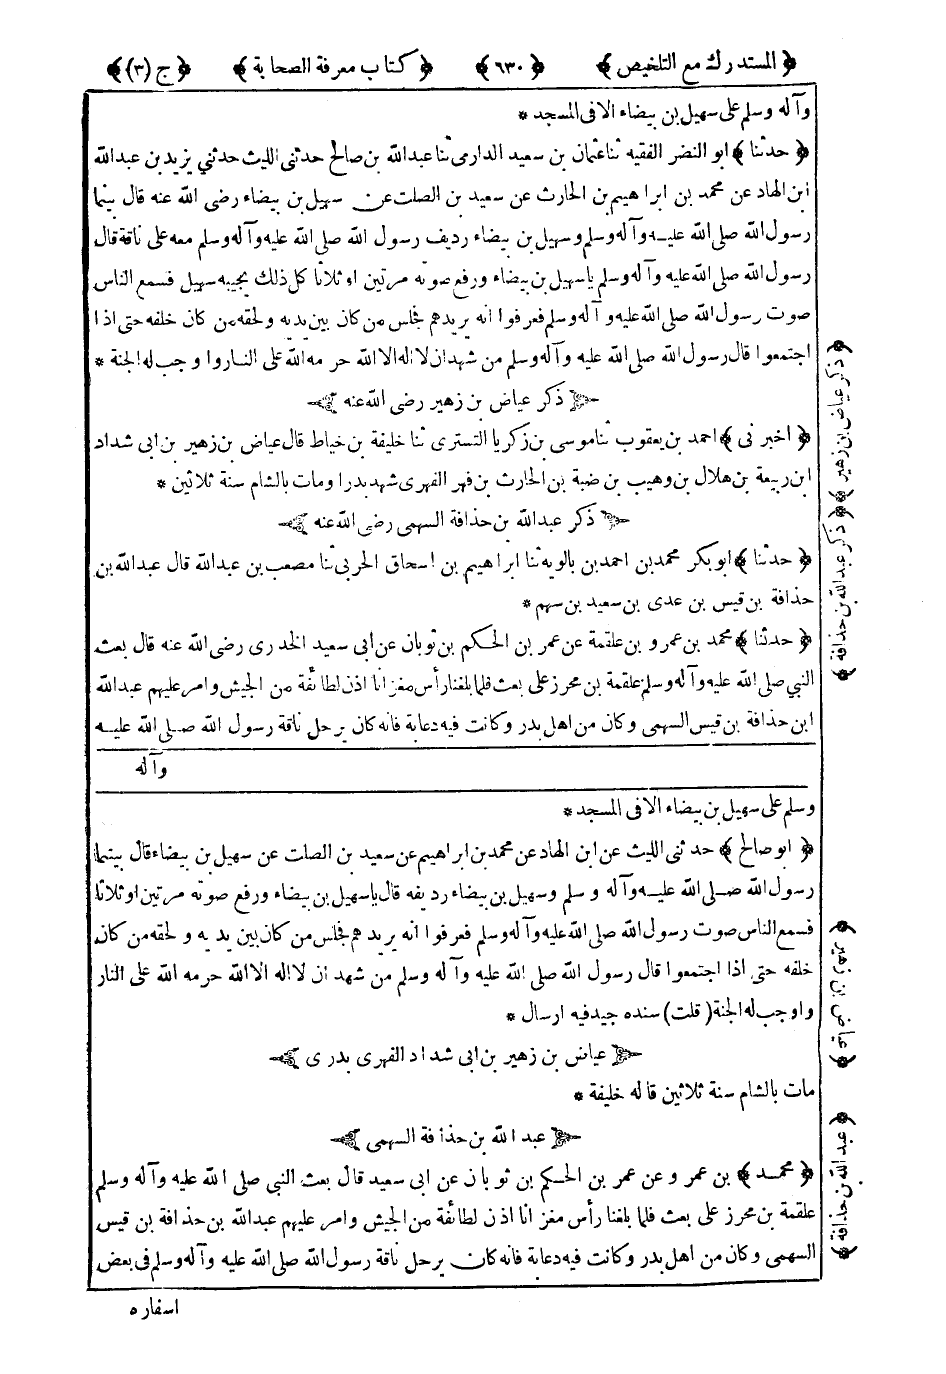 ﴿ المستدرك مع التلخيص ﴾ ﴿ ٦٣٠ ﴾ ﴿ كتاب معرفة الصحابة ﴾ ﴿ ج (٣) ﴾
وآله وسلم على سهيل بن بيضاء الا فى المسجد *
﴿ حدثنا ﴾ ابو النضر الفقيه ثنا عثمان بن سعيد الدارمى ثنا عبدالله بن صالح حدثنى الليث حدثني يزيد بن عبدالله
ابن الهاد عن محمد بن ابراهيم بن الحارث عن سعيد بن الصلت عن سهيل بن بيضاء رضى الله عنه قال بينما
رسول الله صلى الله عليه وآله وسلم وسهيل بن بيضاء رديف رسول الله صلى الله عليه وآله وسلم معه على ناقة قال
رسول الله صلى الله عليه وآله وسلم يا سهيل بن بيضاء ورفع صوته مرتين او ثلاثا كل ذلك يجيبه سهيل فسمع الناس
صوت رسول الله صلى الله عليه وآله وسلم فعرفوا انه يريدهم فجلس من كان بين يديه ولحقه من كان خلفه حتى اذا
اجتمعوا قال رسول الله صلى الله عليه وآله وسلم من شهد ان لا اله الا الله حرمه الله على النار واوجب له الجنة *
ذكر عياض بن زهير رضى الله عنه
﴿ اخبرنى ﴾ احمد بن يعقوب ثنا موسى بن زكريا التسترى ثنا خليفة بن خياط قال عياض بن زهير بن ابى شداد
ابن ربيعة بن هلال بن وهيب بن ضبة بن الحارث بن فهر الفهرى شهد بدرا ومات بالشام سنة ثلاثين *
ذكر عبدالله بن حذافة السهمى رضى الله عنه
﴿ حدثنا ﴾ ابو بكر محمد بن احمد بن بالويه ثنا ابراهيم بن اسحاق الحربى ثنا مصعب بن عبدالله قال عبدالله بن
حذافة بن قيس بن عدى بن سعيد بن سهم *
﴿ حدثنا ﴾ محمد بن عمرو بن علقمة عن عمر بن الحكم بن ثوبان عن ابى سعيد الخدرى رضى الله عنه قال بعث
النبي صلى الله عليه وآله وسلم علقمة بن محرز على بعث فلما بلغنا رأس مغزانا اذن لطائفة من الجيش وامر عليهم عبدالله
ابن حذافة بن قيس السهمى وكان من اهل بدر وكانت فيه دعابة فانه كان يرحل ناقة رسول الله صلى الله عليه
وآله
وسلم على سهيل بن بيضاء الا فى المسجد *
﴿ ابو صالح ﴾ حدثنى الليث عن ابن الهاد عن محمد بن ابراهيم عن سعيد بن الصلت عن سهيل بن بيضاء قال بينما
رسول الله صلى الله عليه وآله وسلم وسهيل بن بيضاء رديفه قال يا سهيل بن بيضاء ورفع صوته مرتين او ثلاثا
فسمع الناس صوت رسول الله صلى الله عليه وآله وسلم فعرفوا انه يريدهم فجلس من كان بين يديه ولحقه من كان
خلفه حتى اذا اجتمعوا قال رسول الله صلى الله عليه وآله وسلم من شهد ان لا اله الا الله حرمه الله على النار
واوجب له الجنة (قلت) سنده جيد فيه ارسال *
عياض بن زهير بن ابى شداد الفهرى بدرى
مات بالشام سنة ثلاثين قاله خليفة *
عبدالله بن حذافة السهمى
﴿ محمد ﴾ بن عمرو عن عمر بن الحكم بن ثوبان عن ابى سعيد قال بعث النبي صلى الله عليه وآله وسلم
علقمة بن محرز على بعث فلما بلغنا رأس مغزانا اذن لطائفة من الجيش وامر عليهم عبدالله بن حذافة بن قيس
السهمى وكان من اهل بدر وكانت فيه دعابة فانه كان يرحل ناقة رسول الله صلى الله عليه وآله وسلم فى بعض
اسفاره
﴿ ذكر عياض بن زهير ﴾
﴿ ذكر عبدالله بن حذافة ﴾
﴿ عياض بن زهير ﴾
﴿ عبدالله بن حذافة ﴾